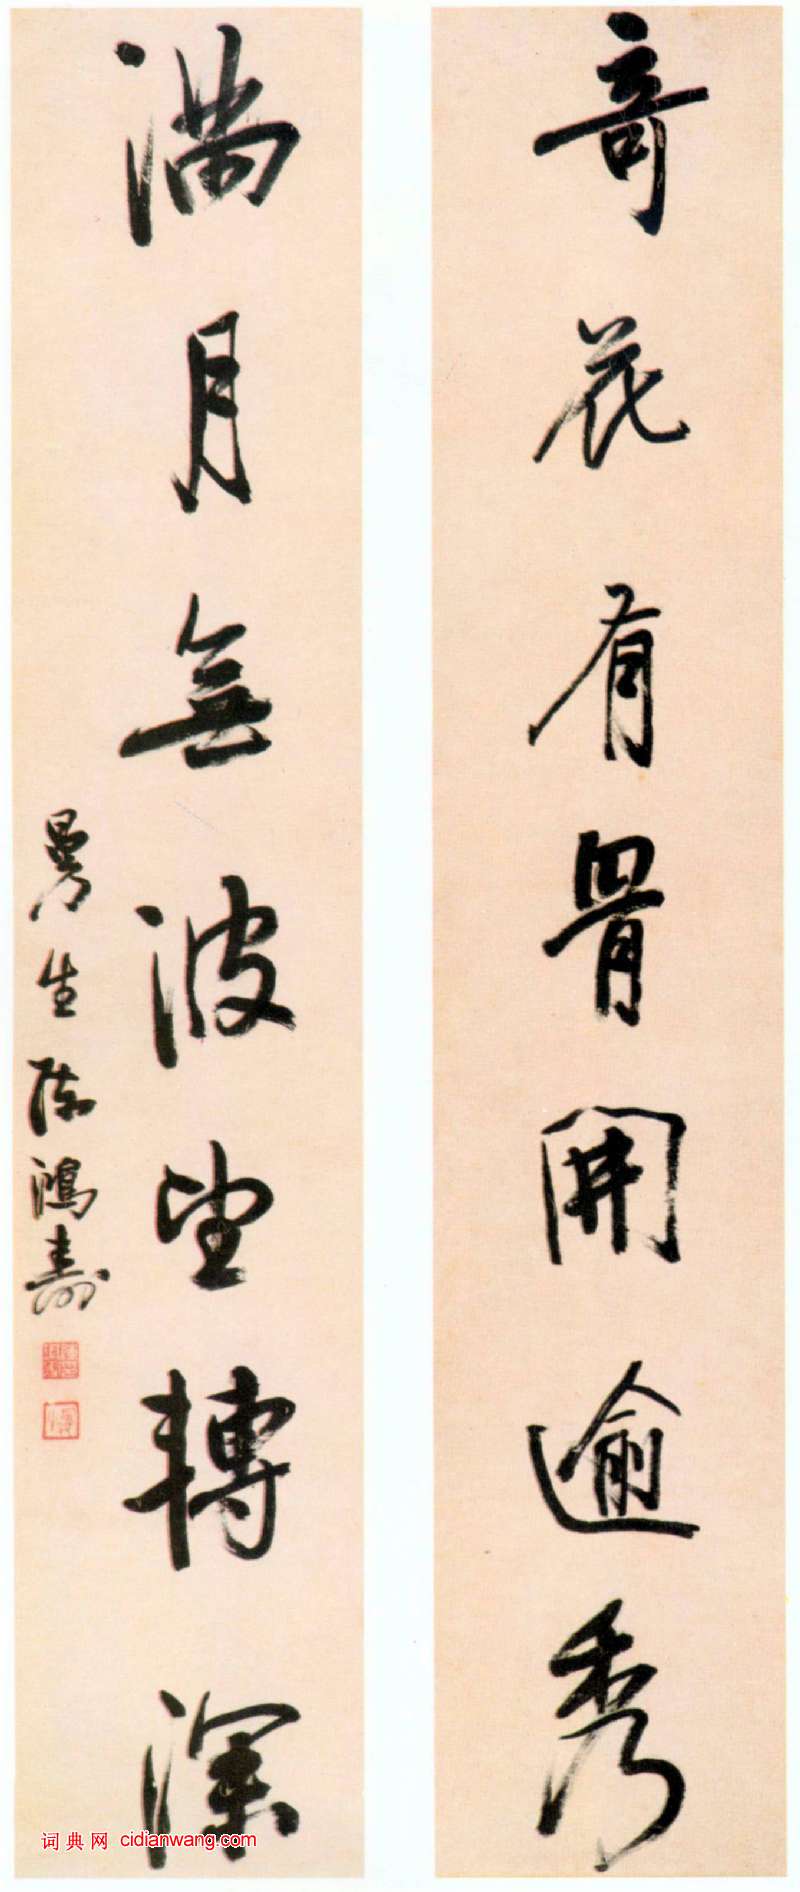 奇花有骨開逾秀
满月無波望轉深
曼生陳鴻壽
词典网 cidianwang.com